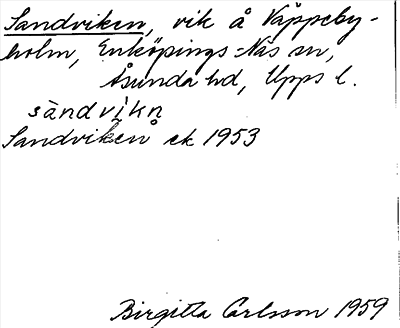 Sandviken, vik å Väppeby-
holm, Enköpings-Näs sn,
Åsunda hd, Upps l.
sàndvìkn̥
Sandviken ek 1953
Birgitta Carlsson 1959